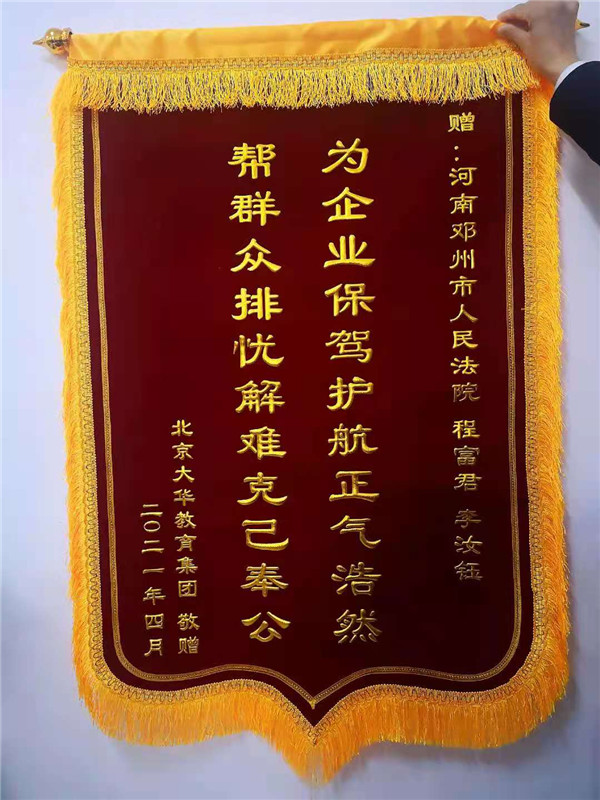 赠：河南邓州市人民法院 程富君 李汝钰
为企业保驾护航正气浩然
帮群众排忧解难克己奉公
北京大华教育集团 敬赠
二〇二一年四月